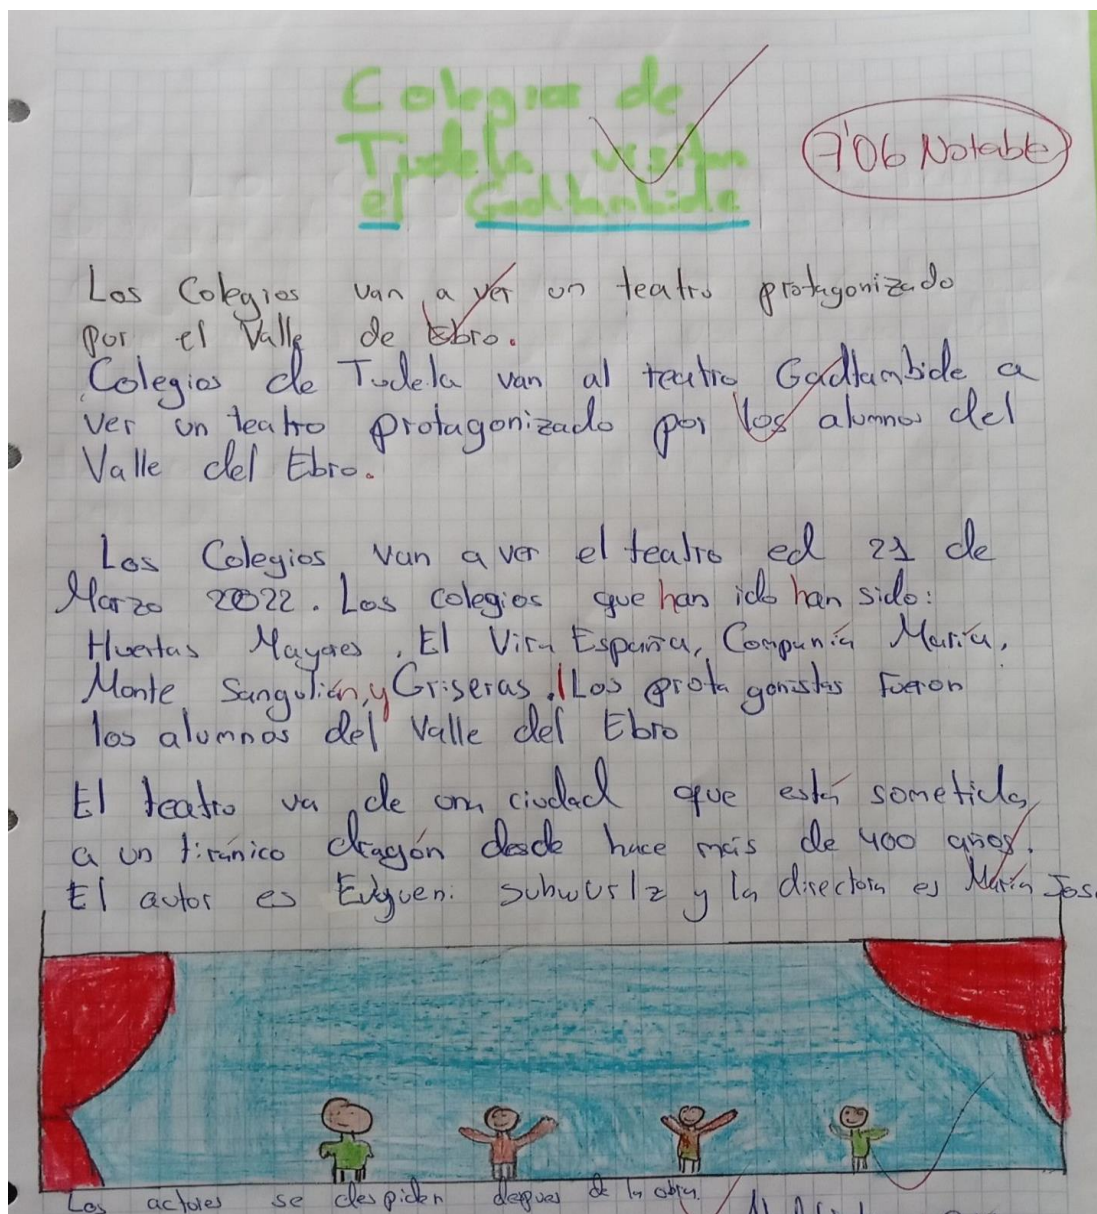 Colegios de
Tudela visitan
el Gadtambide
7'06 Notable
Los Colegios van a ver un teatro protagonizado
por el Valle de Ebro.
Colegios de Tudela van al teatro Gadtambide a
ver un teatro protagonizado por los alumnos del
Valle del Ebro.
Los Colegios van a ver el teatro ed 21 de
Marzo 2022. Los colegios que han ido han sido:
Huertas Mayores, El Vira España, Compañía María,
Monte Sangulián, y Griseras. Los protagonistas fueron
los alumnos del Valle del Ebro
El teatro va de una ciudad que está sometida
a un tiránico dragón desde hace más de 400 años.
El autor es Evgueni y la directora es María Jos
Los actores se despiden despues de la obra.